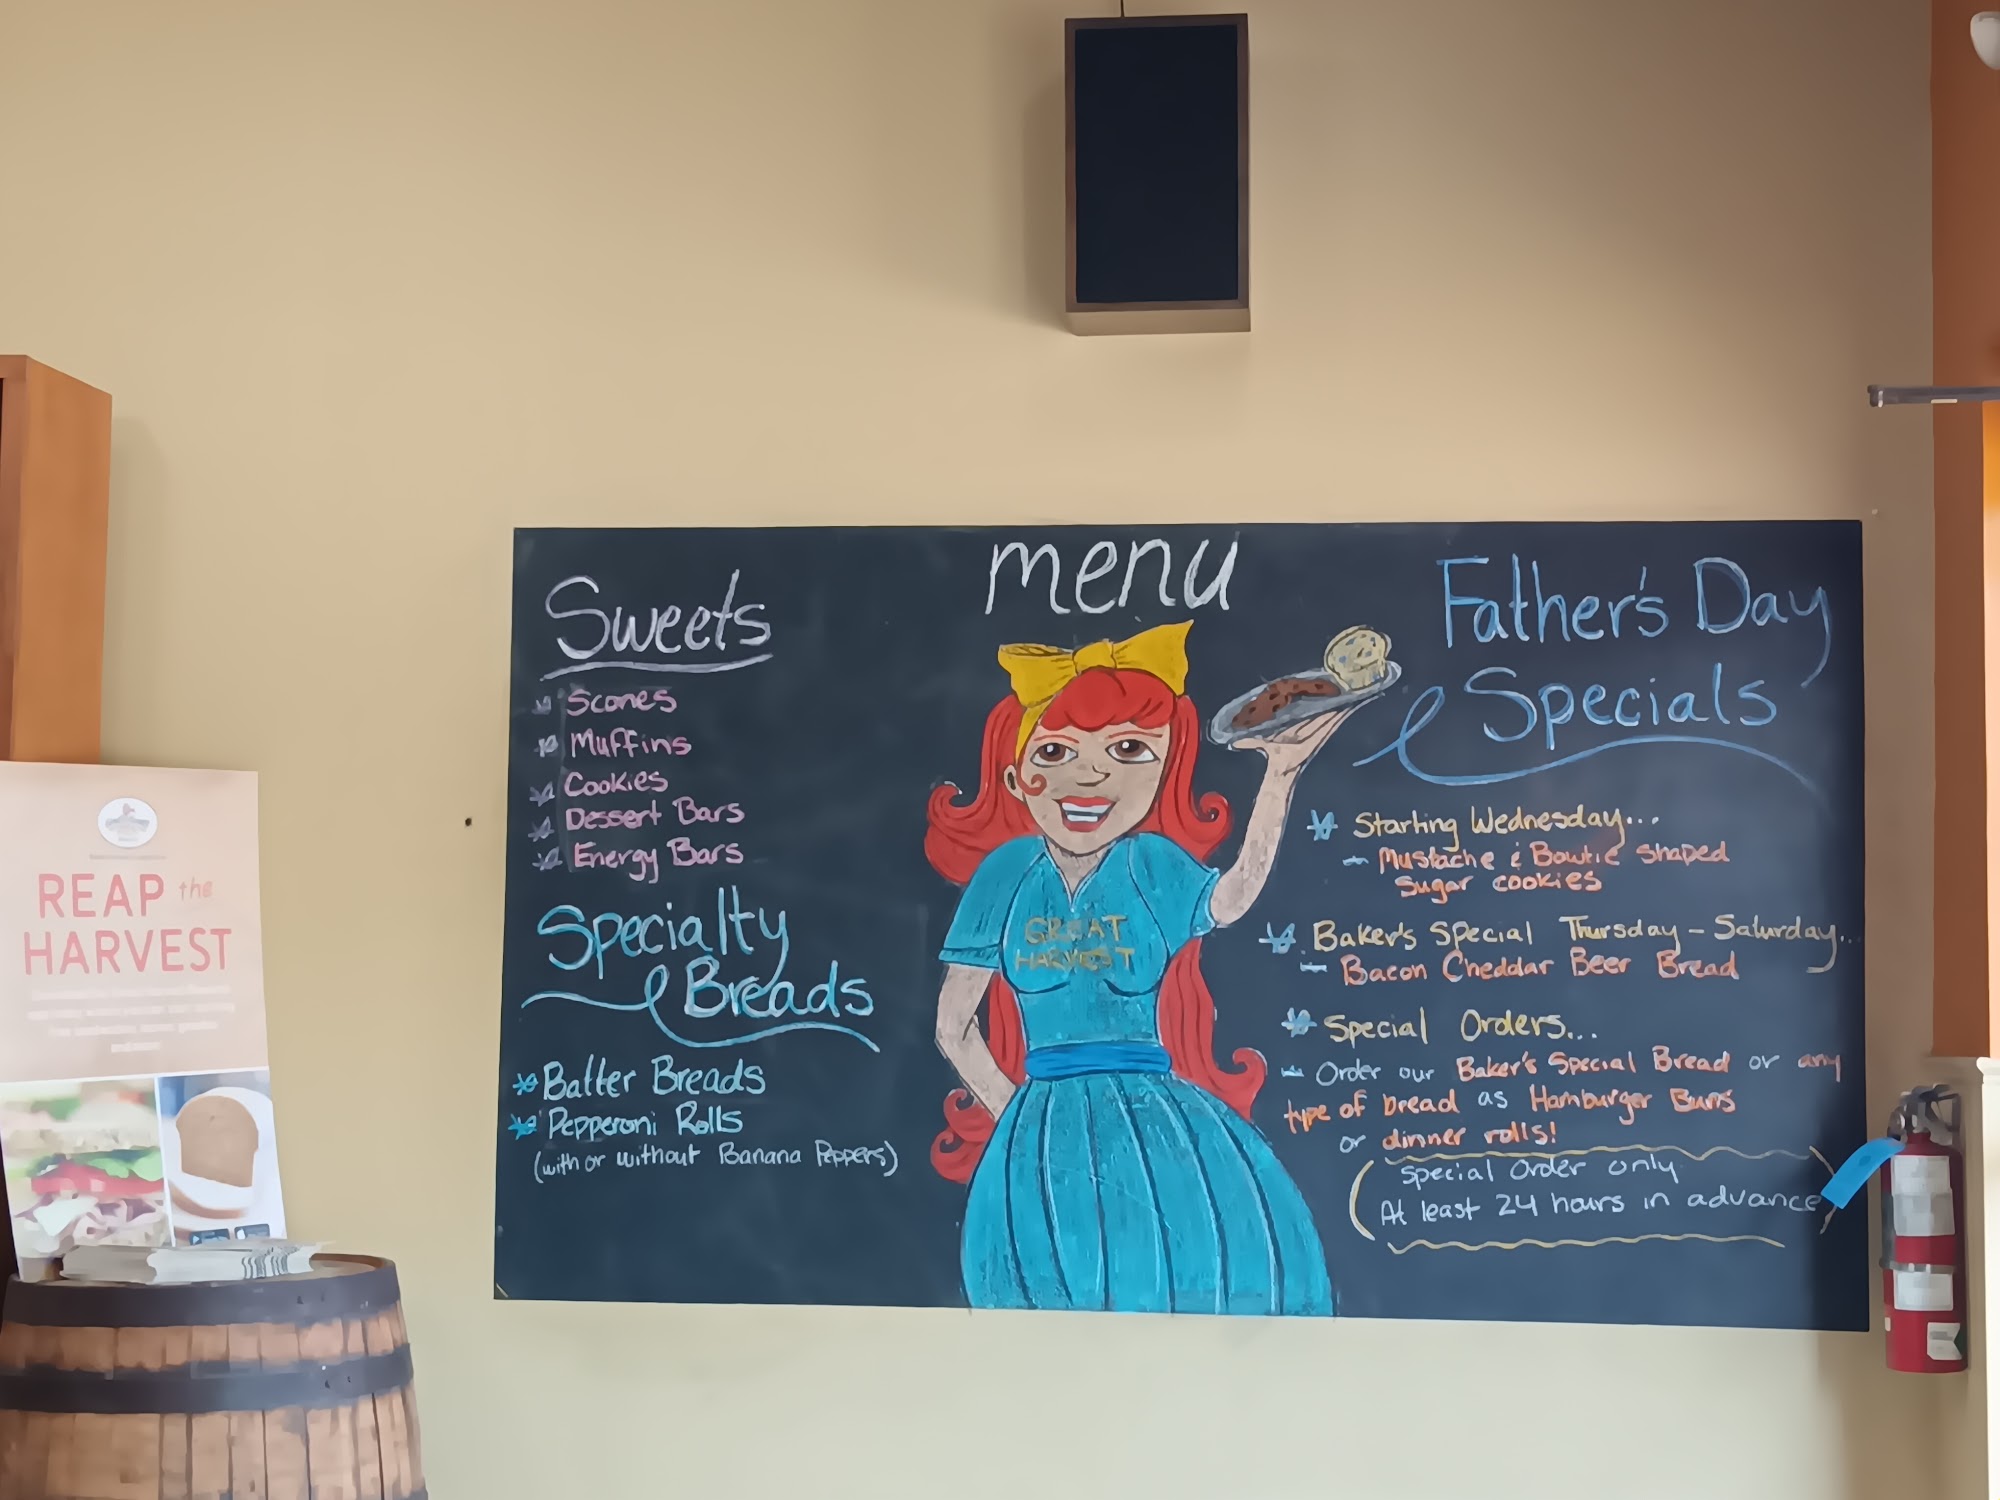 menu
Sweets
Scones
Muffins
Cookies
Dessert Bars
Energy Bars
Specialty
Breads
Batter Breads
Pepperoni Rolls
(with or without Banana Peppers)
GREAT
HARVEST
Father's Day
Specials
Starting Wednesday...
- Mustache & Bowtie shaped
sugar cookies
Baker's Special Thursday - Saturday...
- Bacon Cheddar Beer Bread
Special Orders...
- Order our Baker's Special Bread or any
type of bread as Hamburger Buns
or dinner rolls!
(Special Order only
At least 24 hours in advance)
REAP the
HARVEST